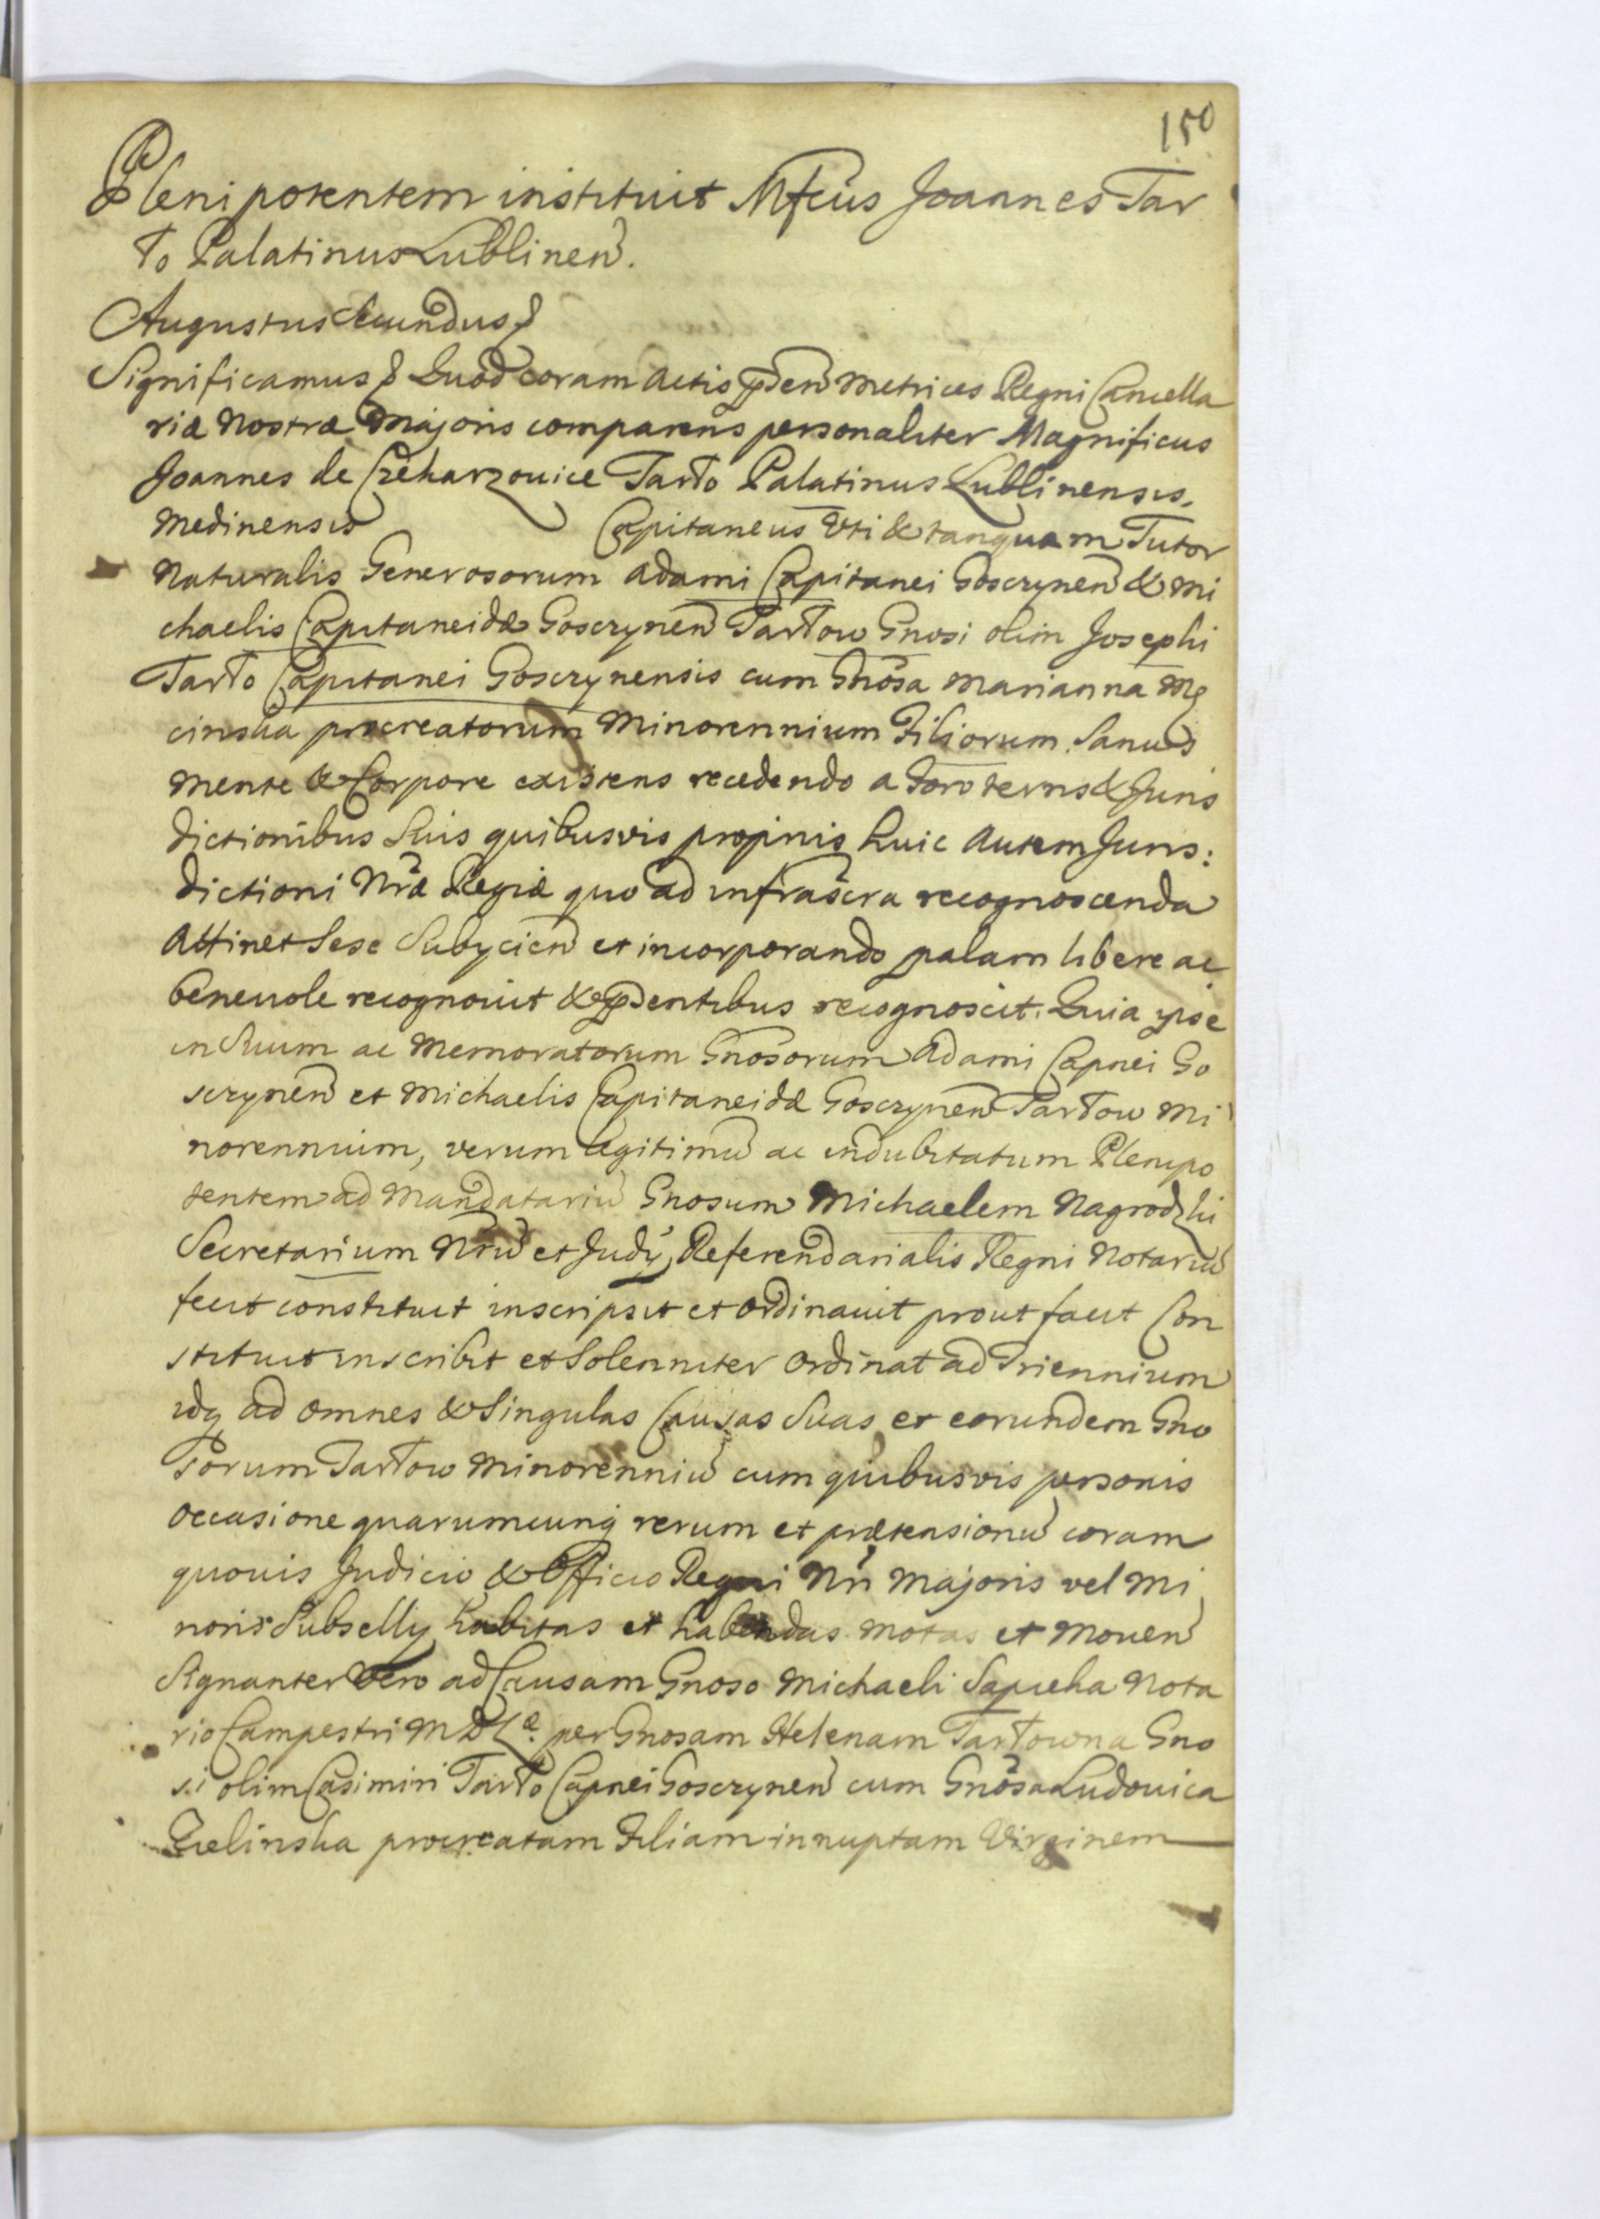 150
Plenipotentem instituit Mfcus Joannes Tar
ło Palatinus Lublinen.
Augustus Secundus &
Significamus & Quod coram Actis pden Metrices Regni Cancella
riæ Nostræ Majoris comparens personaliter Magnificus
Joannes de Czekarzouice Tarło Palatinus Lublinensis,
Medinensis Capitaneus Uti & tanquam Tutor
Naturalis Generosorum Adami Capitanei Goscrynen & Mi
chaelis Capitaneidæ Goscrynen Tarłow Gnosi olim Josephi
Tarło Capitanei Goscrynensis cum Gnosa Marianna Mę
cinska procreatorum Minorennium Filiorum. Sanus
Mente & Corpore existens recedendo a Foro terris & Juris
dictionibus Suis quibusvis proprijs huic Autem Juris:
dictioni Nræ Regiæ quo ad infrascra recognoscenda
Attinet Sese Subycien et incorporando palam libere ac
beneuole recognouit & pdentibus recognoscit. Quia ipse
in Suum ac Memoratorum Gnosorum Adami Capnei Go
scrynen et Michaelis Capitaneidæ Goscrynen Tarłow Mi
norennium, verum legitimu ac indubitatum Plenipo
tentem ad Mandatariu Gnosum Michaelem Nagrodzki
Secretarium Nru et Judy Referendarialis Regni Notariu
fecit constituit inscripsit et ordinauit prout facit Con
stituit inscribit et Solenniter Ordinat ad Triennium
idq ad omnes & Singulas Causas Suas et eorundem Gno
sorum Tarłow Minorenniu cum quibusvis personis
occasione quarumcunq rerum et prætensionu coram
quouis Judicio & Officio Regni Nri Majoris vel Mi
noris Subselly habitas et habendas motas et Mouen
Signanter Vero ad Causam Gnoso Michaeli Sapieha Nota
rio Campestri M D Læ. per Gnosam Helenam Tarłowna Gno
si olim Casimiri Tarło Capnei Goscrynen cum Gnosa Ludouica
Zielinska procreatam Filiam innuptam Virginem